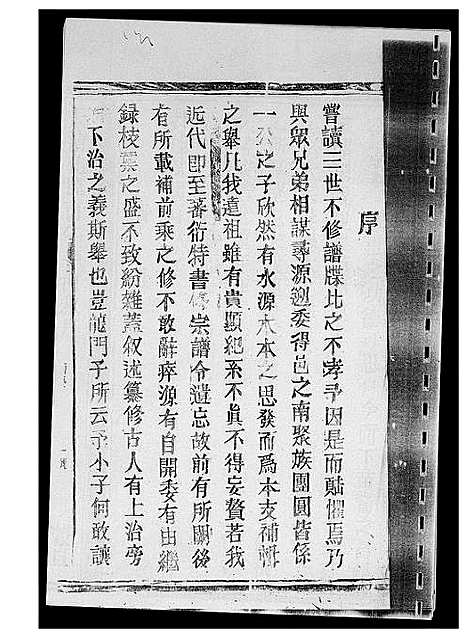 序
嘗讀三世不修譜牒比之不孝予因是而惕懼焉乃
與眾兄弟相謀尋源遡委得邑之南聚族團圓皆係
一公之子欣然有水源木本之思發而爲本支補輯
之舉凡我遠祖雖有貴顯紀系不眞不得妄贅若我
近代即至蕃衍特書修宗譜令遺忘故前有所闕後
有所載補前乘之修不敢辭瘁源有自開委有由繼
録枝葉之盛不致紛雜蓋叙述纂修古人有上治旁
下治之義斯舉也豈龍門子所云予小子何敢讓